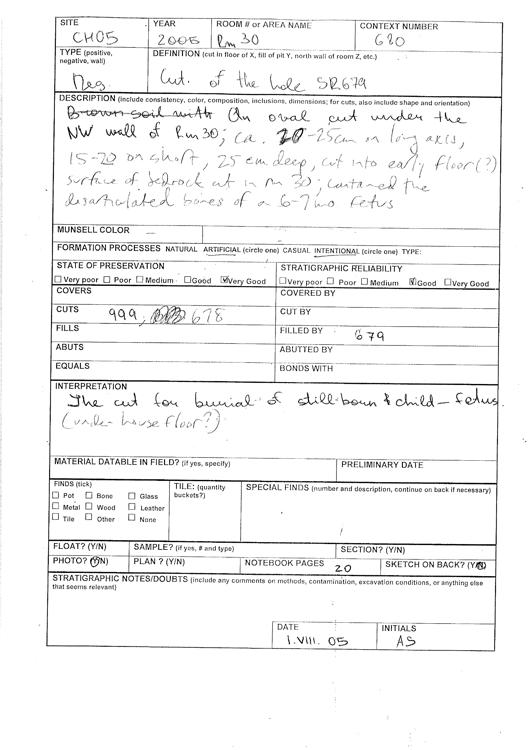 SITE
CH05
YEAR
2005
ROOM # or AREA NAME
Rm 30
CONTEXT NUMBER
680
TYPE (positive, negative, wall)
Neg
DEFINITION (cut in floor of X, fill of pit Y, north wall of room Z, etc.)
Cut of the hole SR679
DESCRIPTION (include consistency, color, composition, inclusions, dimensions; for cuts, also include shape and orientation)
Brown soil with An oval cut under the
NW wall of Rm30; ca. 20-25cm on long axis,
15-20 on short, 25 cm deep, cut into early floor(?)
surface of bedrock cut in rm 30; contained the
disarticulated bones of a 6-7 mo fetus
MUNSELL COLOR
FORMATION PROCESSES NATURAL ARTIFICIAL (circle one) CASUAL INTENTIONAL (circle one) TYPE:
STATE OF PRESERVATION
STRATIGRAPHIC RELIABILITY
Very poor Poor Medium Good Very Good
Very poor Poor Medium Good Very Good
COVERS
COVERED BY
CUTS 999, 678
CUT BY
FILLS
FILLED BY 679
ABUTS
ABUTTED BY
EQUALS
BONDS WITH
INTERPRETATION
The cut for burial of stillbourn child - fetus.
(under house floor?)
MATERIAL DATABLE IN FIELD? (if yes, specify)
PRELIMINARY DATE
FINDS (tick)
Pot Bone Glass
Metal Wood Leather
Tile Other None
TILE: (quantity buckets?)
SPECIAL FINDS (number and description, continue on back if necessary)
FLOAT? (Y/N)
SAMPLE? (if yes, # and type)
SECTION? (Y/N)
PHOTO? (Y/N)
PLAN ? (Y/N)
NOTEBOOK PAGES 20
SKETCH ON BACK? (Y/N)
STRATIGRAPHIC NOTES/DOUBTS (include any comments on methods, contamination, excavation conditions, or anything else
that seems relevant)
DATE
1.VIII.05
INITIALS
AS